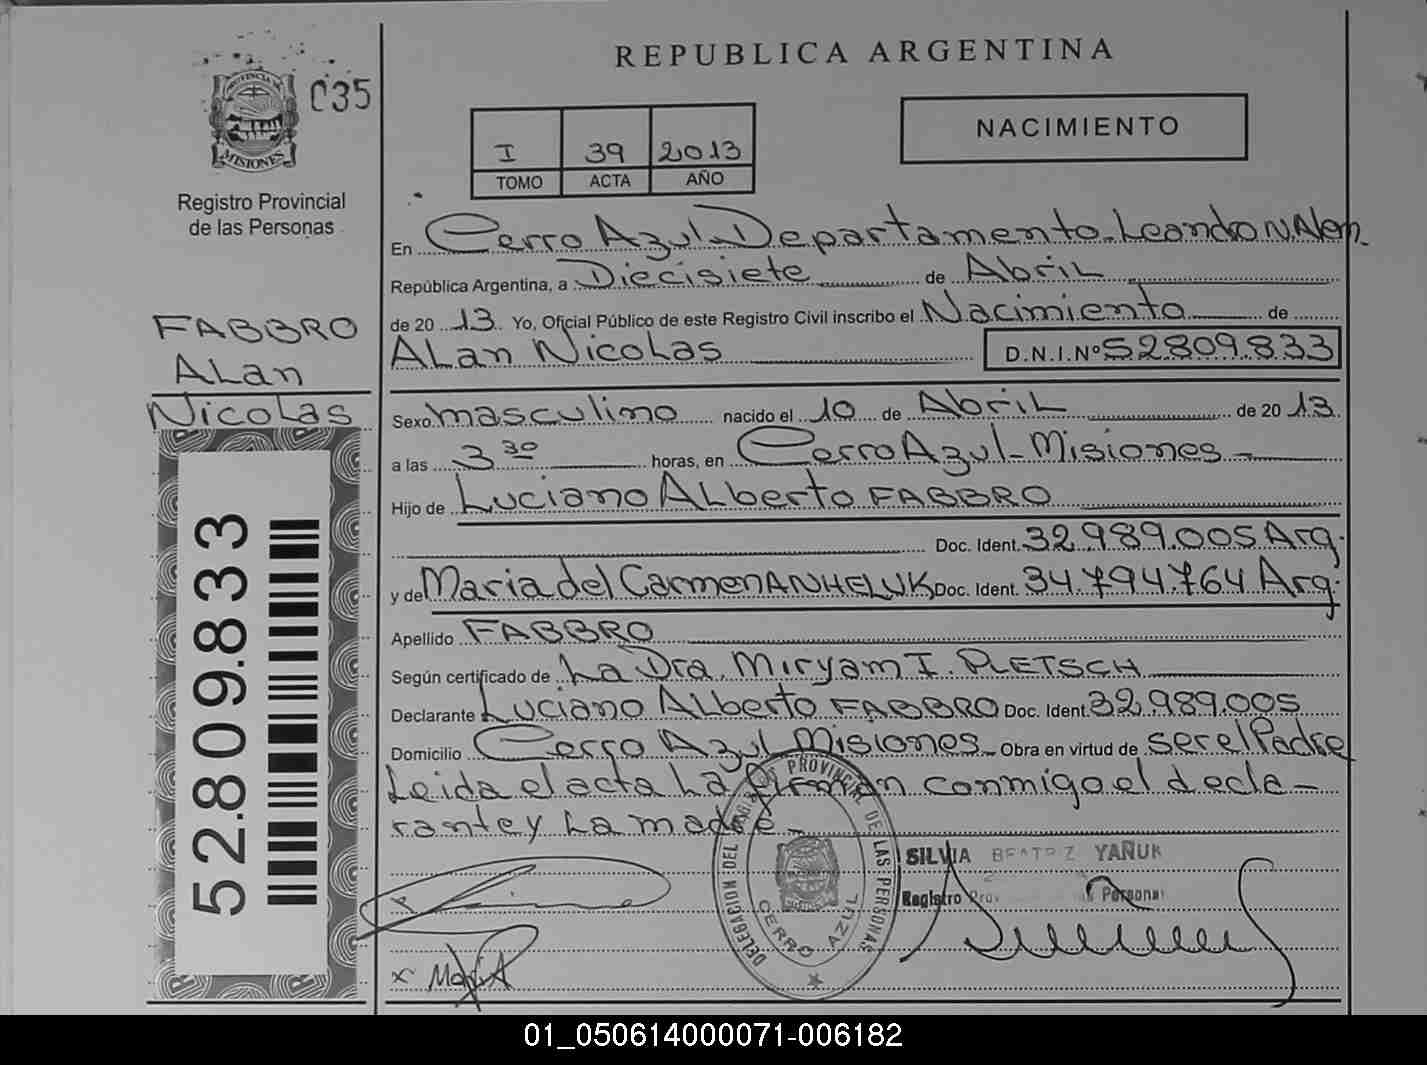 035
PROVINCIA DE
MISIONES
Registro Provincial
de las Personas
FABBRO
ALan
NicoLas
52.809.833
REPUBLICA ARGENTINA
I 39 2013
TOMO ACTA AÑO
NACIMIENTO
En Cerro Azul - Departamento - Leandro N. Alem
República Argentina, a Diecisiete de AbriL
de 20 13 Yo, Oficial Público de este Registro Civil inscribo el Nacimiento de
ALan NicoLas D.N.I.Nº 52.809.833
Sexo masculino nacido el 10 de AbriL de 20 13
a las 3 30 horas, en Cerro Azul - Misiones -
Hijo de Luciano ALberto FABBRO
Doc. Ident. 32.989.005 Arg.
y de Maria del Carmen ANHELUK Doc. Ident. 34.794.764 Arg.
Apellido FABBRO
Según certificado de La Dra. Miryam I. PLETSCH
Declarante Luciano ALberto FABBRO Doc. Ident. 32.989.005
Domicilio Cerro Azul Misiones - Obra en virtud de ser el Padre
Leida el acta La firman conmigo el decla-
rante y La madre -
DELEGACION DEL REGISTRO PROVINCIAL DE LAS PERSONAS
CERRO AZUL
SILVIA BEATRIZ YAÑUK
Registro
01_050614000071-006182